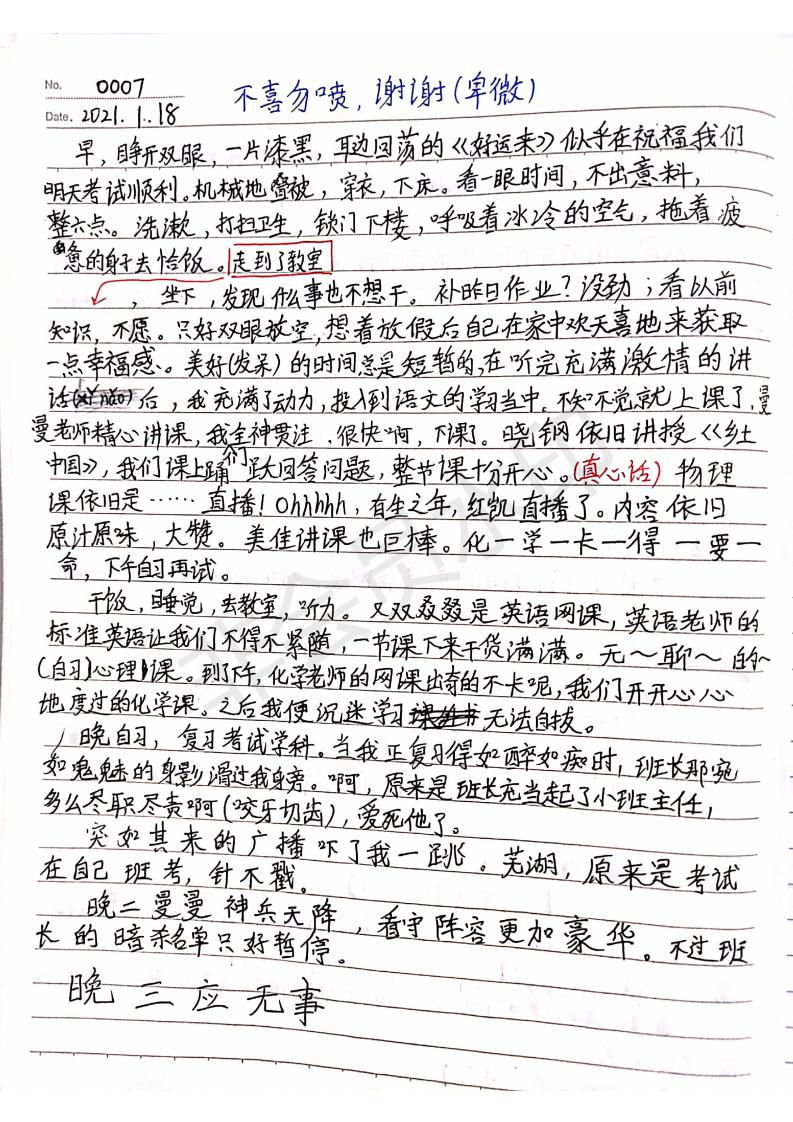 No. 0007
不喜勿喷，谢谢(卑微)
Date. 2021.1.18
早，睁开双眼，一片漆黑，耳边回荡的《好运来》似乎在祝福我们
明天考试顺利。机械地叠被，穿衣，下床。看一眼时间，不出意料，
整六点。洗漱，打扫卫生，锁门下楼，呼吸着冰冷的空气，拖着疲
惫的身子去恰饭。走到了教室
，坐下，发现什么事也不想干。补昨日作业？没劲；看以前
知识，不愿。只好双眼放空，想着放假后自己在家中欢天喜地来获取
一点幸福感。美好(发呆)的时间总是短暂的，在听完充满激情的讲
话(xǐ nǎo)后，我充满了动力，投入到语文的学习当中。不知不觉就上课了，曼
曼老师精心讲课，我全神贯注，很快啊，下课了。晓钢依旧讲授《乡土
中国》，我们课上踊们跃回答问题，整节课十分开心。(真心话)物理
课依旧是……直播！Ohhhhh，有生之年，红凯直播了。内容依旧
原汁原味，大赞。美佳讲课也巨棒。化一学一卡一得一要一
命，下午自习再试。
干饭，睡觉，去教室，听力。又双叒叕是英语网课，英语老师的
标准英语让我们不得不紧随，一节课下来干货满满。无～聊～的～
(自习)心理课。到下午，化学老师的网课出奇的不卡呢，我们开开心心
地度过的化学课。之后我便沉迷学习无法自拔。
晚自习，复习考试学科。当我正复习得如醉如痴时，班长那宛
如鬼魅的身影溜过我身旁。啊，原来是班长充当起了小班主任，
多么尽职尽责啊(咬牙切齿)，爱死他了。
突如其来的广播吓了我一跳。芜湖，原来是考试
在自己班考，针不戳。
晚二曼曼神兵天降，看守阵容更加豪华。不过班
长的暗杀名单只好暂停。
晚三应无事
非会员水印